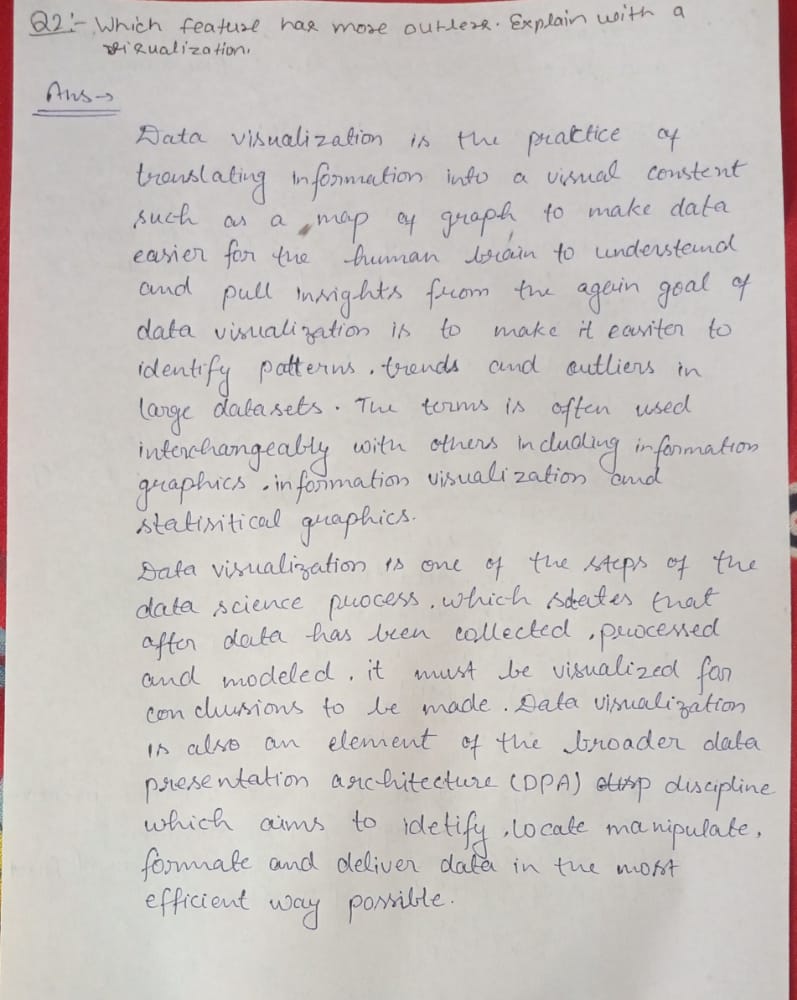 Q2:- Which feature has more outlers. Explain with a
visualization.
Ans→
Data visualization is the practice of
translating information into a visual constent
such as a map of graph, to make data
easier for the human brain to understand
and pull insights from the again goal of
data visualization is to make it easiter to
identify patterns, trends and outliers in
large datasets. The terms is often used
interchangeably with others including information
graphics, information visualization and
statisitical graphics.
Data visualization is one of the steps of the
data science process, which states that
after data has been collected, processed
and modeled, it must be visualized for
conclusions to be made. Data visualization
is also an element of the broader data
presentation architecture (DPA) discipline
which aims to idetify, locate manipulate,
formate and deliver data in the most
efficient way possible.